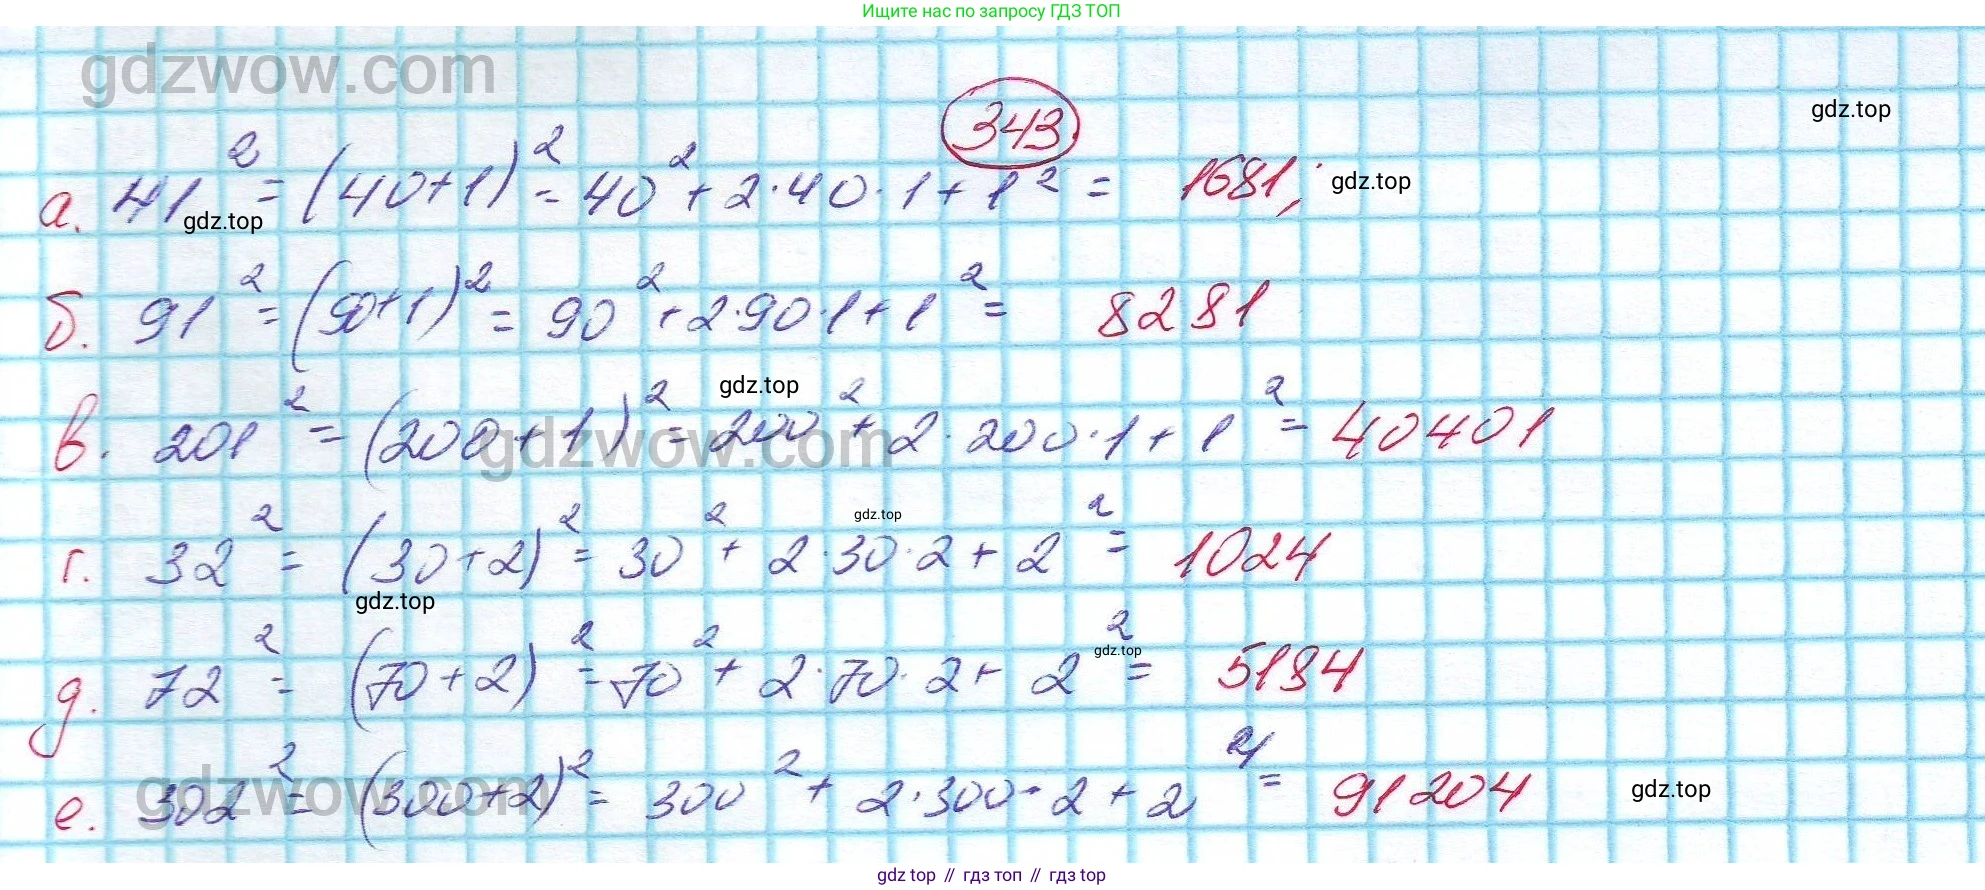 Ищите нас по запросу ГДЗ ТОП
gdzwow.com
343
gdz.top
а. 41² = (40+1)² = 40² + 2·40·1 + 1² = 1681;
gdz.top
gdz.top
б. 91² = (90+1)² = 90² + 2·90·1 + 1² = 8281
gdz.top
в. 201² = (200+1)² = 200² + 2·200·1 + 1² = 40401
gdzwow.com
gdz.top
г. 32² = (30+2)² = 30² + 2·30·2 + 2² = 1024
gdz.top
gdz.top
д. 72² = (70+2)² = 70² + 2·70·2 + 2² = 5184
е. 302² = (300+2)² = 300² + 2·300·2 + 2² = 91204
gdzwow.com
gdz.top
gdz top // гдз топ // гдз top